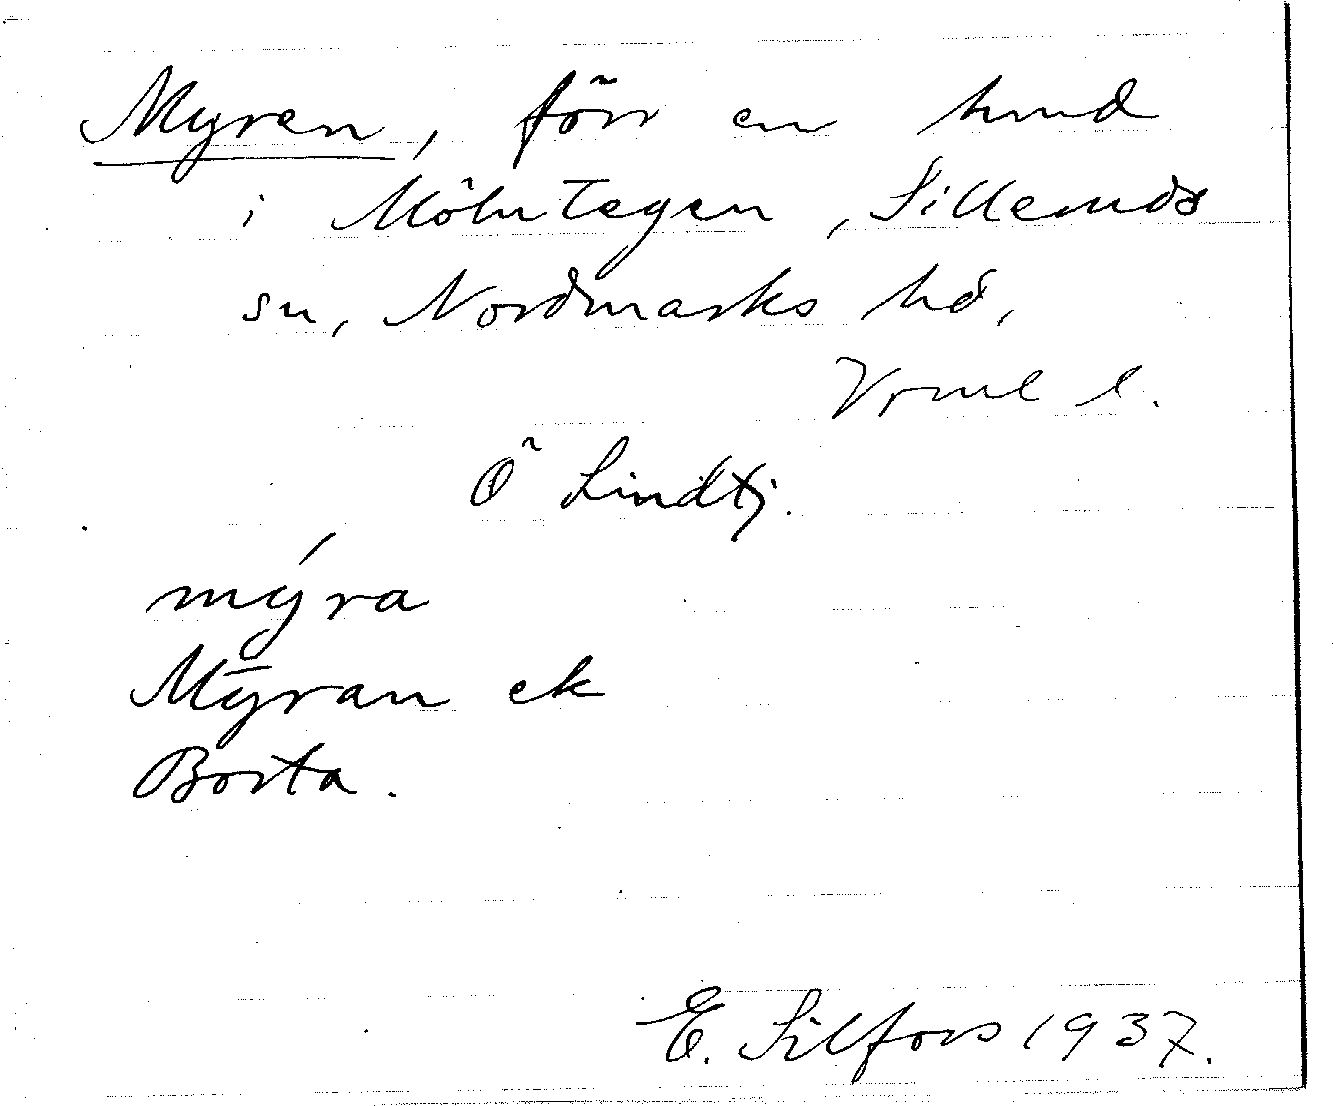 Myren, förr en hund
i Mölntegen, Silleruds
sn, Nordmarks hd,
Vrml l.
Ö Lindtj.
mýra
Mȳran ek
Borta.
E. Silfors 1937.